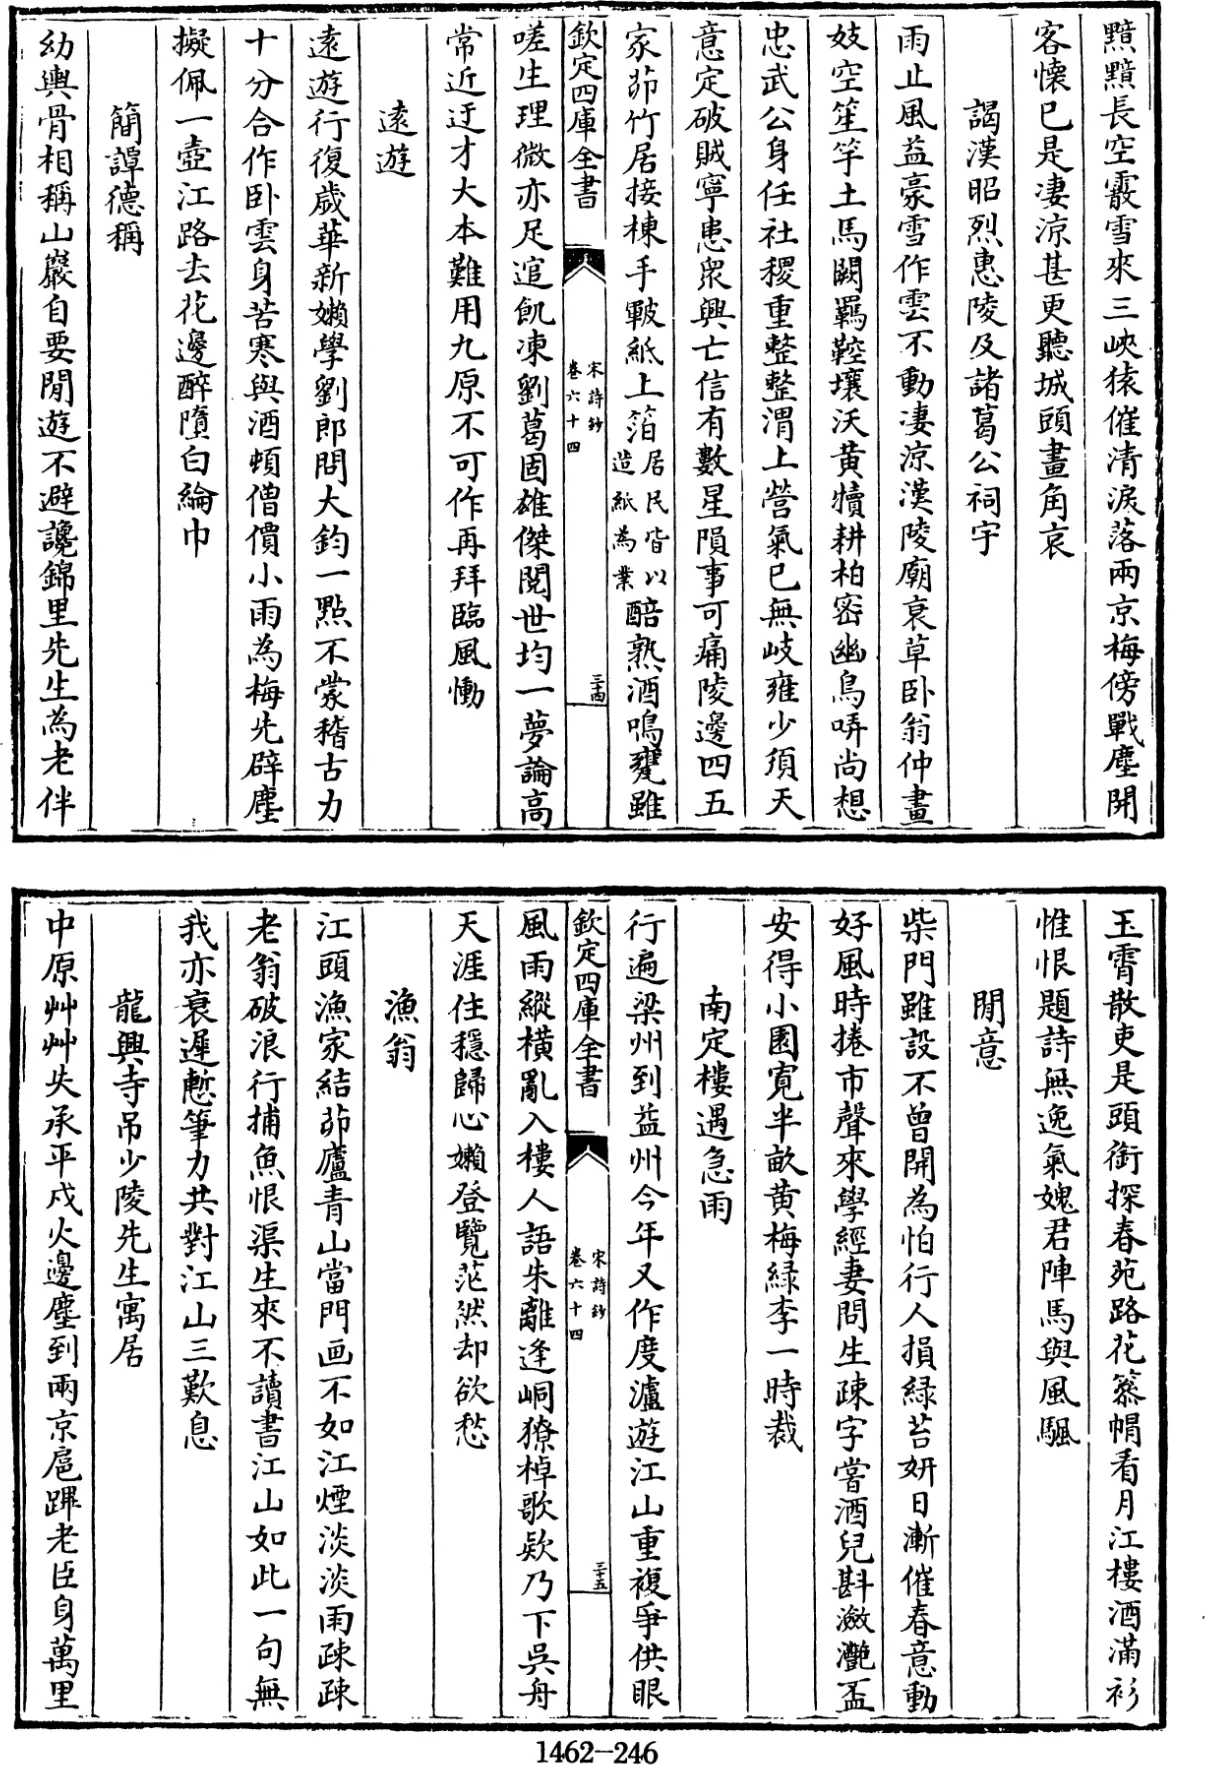 黯黯長空霰雪來三峽猿催清淚落兩京梅傍戰塵開
客懷已是凄涼甚更聽城頭畫角哀
謁漢昭烈惠陵及諸葛公祠宇
雨止風益豪雪作雲不動凄涼漢陵廟衰草卧翁仲畫
妓空笙竽土馬闕羈鞚壤沃黄犢耕柏密幽鳥哢尚想
忠武公身任社稷重整整渭上營氣已無岐雍少須天
意定破賊寧患衆興亡信有數星隕事可痛陵邊四五
家茆竹居接棟手皸紙上箔居民皆以造紙為業醅熟酒鳴甕雖
欽定四庫全書
宋詩鈔
卷六十四
三十四
嗟生理微亦足逭飢凍劉葛固雄傑閱世均一夢論高
常近迂才大本難用九原不可作再拜臨風慟
遠遊
遠遊行復歲華新嬾學劉郎問大鈞一點不蒙稽古力
十分合作卧雲身苦寒與酒頓僧價小雨為梅先辟塵
擬佩一壺江路去花邊醉墮白綸巾
簡譚德稱
幼輿骨相稱山巖自要閒遊不避讒錦里先生為老伴
玉霄散吏是頭銜探春苑路花簇帽看月江樓酒滿衫
惟恨題詩無逸氣媿君陣馬與風颿
閒意
柴門雖設不曾開為怕行人損緑苔妍日漸催春意動
好風時捲市聲來學經妻問生疎字嘗酒兒斟瀲灔盃
安得小園寛半畝黄梅緑李一時栽
南定樓遇急雨
行遍梁州到益州今年又作度瀘遊江山重複爭供眼
欽定四庫全書
宋詩鈔
卷六十四
三十五
風雨縱橫亂入樓人語朱離逢峒獠棹歌欵乃下吳舟
天涯住穩歸心嬾登覽茫然却欲愁
漁翁
江頭漁家結茆廬青山當門画不如江煙淡淡雨疎疎
老翁破浪行捕魚恨渠生來不讀書江山如此一句無
我亦衰遲慙筆力共對江山三歎息
龍興寺吊少陵先生寓居
中原艸艸失承平戍火邊塵到兩京扈蹕老臣身萬里
1462-246